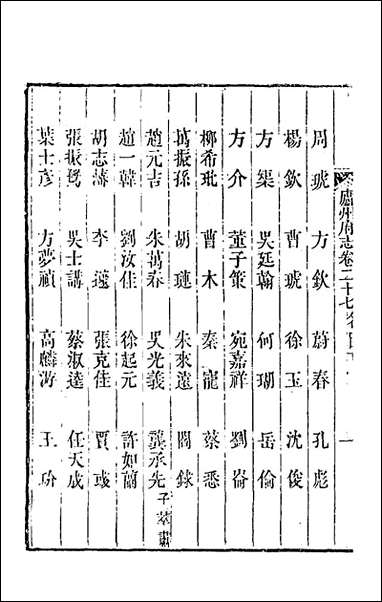 廬州府志卷二十七
一
周琥 方欽 蔚春 孔彪
楊欽 曹琥 徐玉 沈俊
方渠 吳廷翰 何瑚 岳倫
方介 董子策 宛嘉祥 劉崙
柳希玭 曹木 秦寵 蔡悉
萬振孫 胡璉 朱來遠 閻錄
趙元吉 朱萬春 吳光義 龔承先 子萃肅
趙一韓 劉汝佳 徐起元 許如蘭
胡志藩 李遠 張克佳 賈彧
張振 吳士講 蔡淑逵 任天成
葉士彥 方夢禎 高麟 王